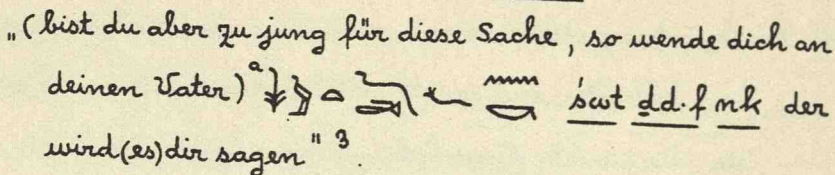 „(bist du aber zu jung für diese Sache, so wende dich an
deinen Vater)ᵃ 𓇓𓅱𓏏𓆓𓂧𓆑𓈖𓎡 śwt ḏd·f nk der
wird(es)dir sagen" ³.